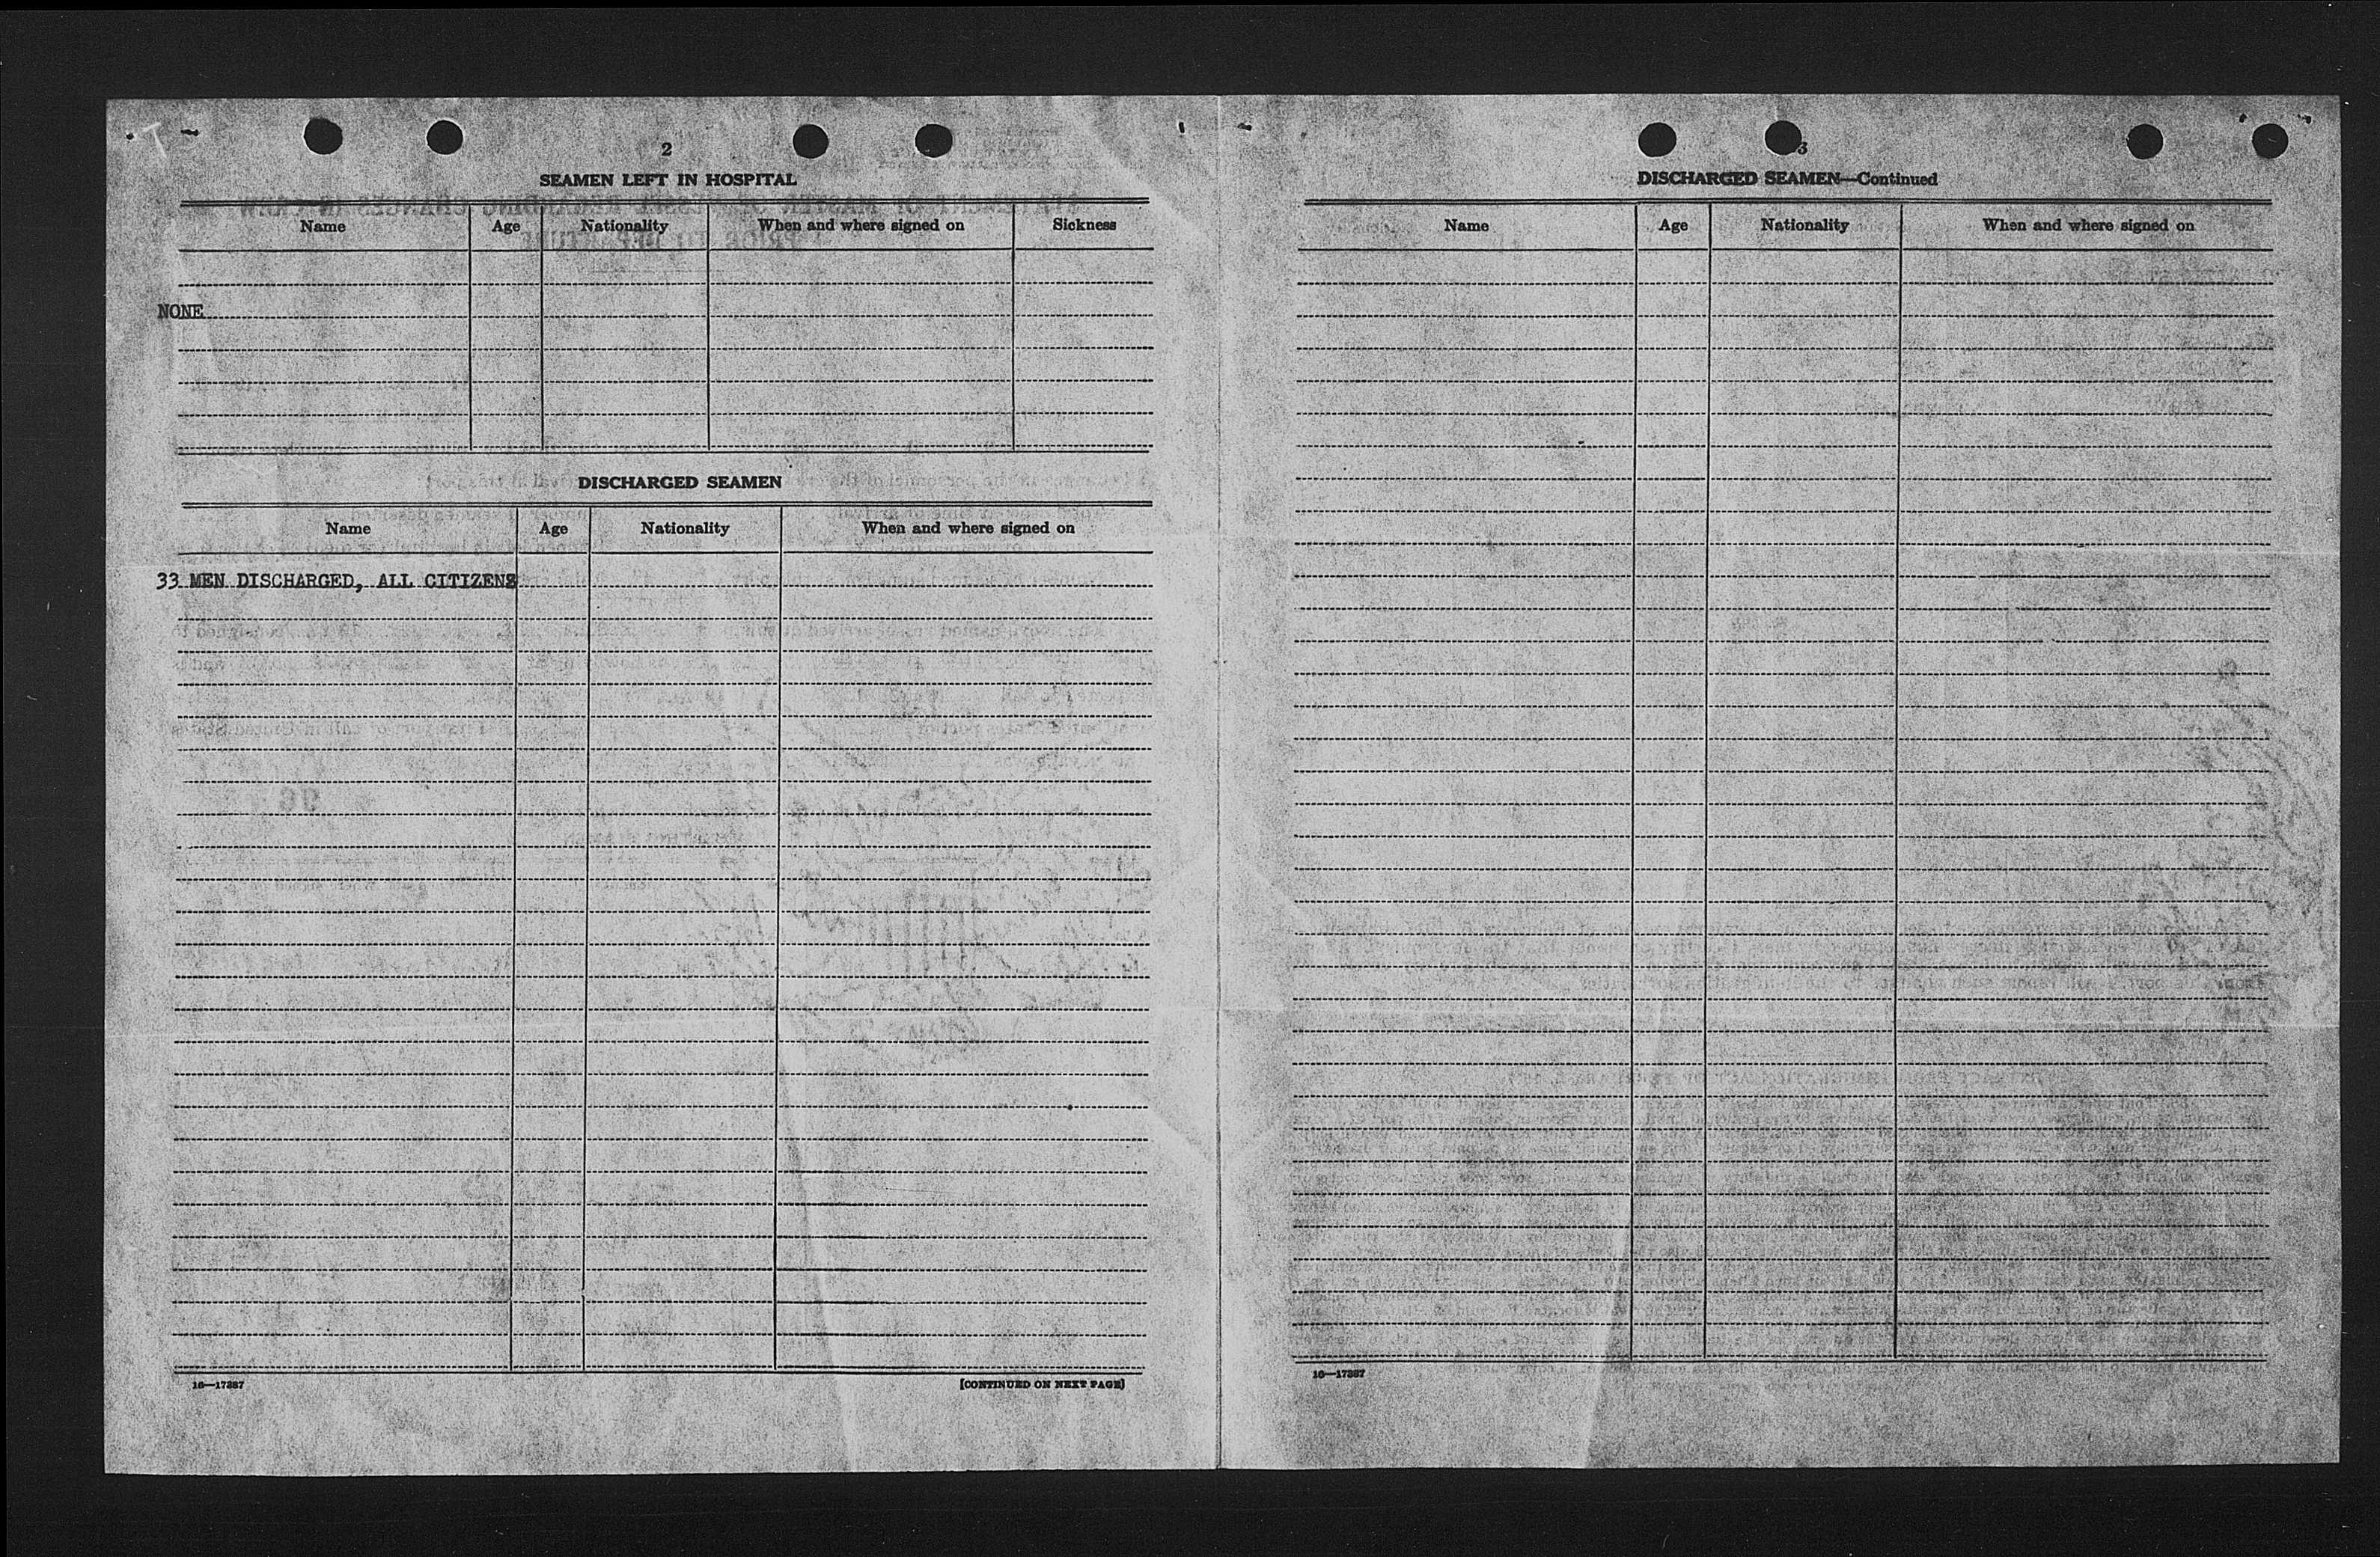 2
SEAMEN LEFT IN HOSPITAL
Name Age Nationality When and where signed on Sickness
NONE
DISCHARGED SEAMEN
Name Age Nationality When and where signed on
33 MEN DISCHARGED, ALL CITIZENS
16—17387 [CONTINUED ON NEXT PAGE]
3
DISCHARGED SEAMEN—Continued
Name Age Nationality When and where signed on
16—17387